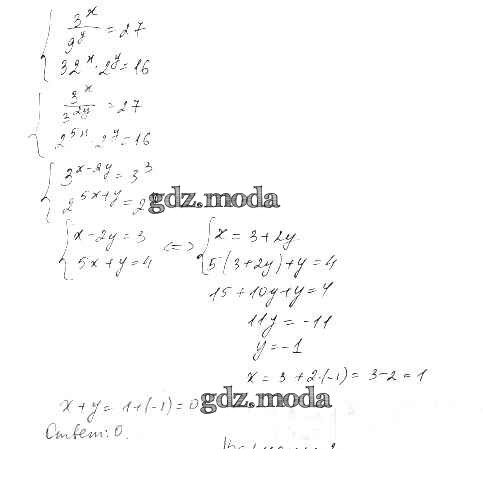 3^x / 9^y = 27
32^x · 2^y = 16
3^x / 3^2y = 27
2^5x · 2^y = 16
3^x-2y = 3^3
2^5x+y = 2
gdz.moda
x - 2y = 3 <=> x = 3 + 2y
5x + y = 4 5(3 + 2y) + y = 4
15 + 10y + y = 4
11y = -11
y = -1
x = 3 + 2·(-1) = 3 - 2 = 1
gdz.moda
x + y = 1 + (-1) = 0
Ответ: 0.